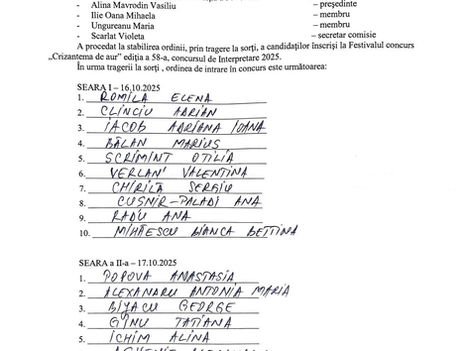 - Alina Mavrodin Vasiliu – președinte
- Ilie Oana Mihaela – membru
- Ungureanu Maria – membru
- Scarlat Violeta – secretar comisie
A procedat la stabilirea ordinii, prin tragere la sorți, a candidaților înscriși la Festivalul concurs
„Crizantema de aur” ediția a 58-a, concursul de Interpretare 2025.
În urma tragerii la sorți , ordinea de intrare în concurs este următoarea:
SEARA I – 16.10.2025
1. ROMILA ELENA
2. CLINCIU ADRIAN
3. IACOB ADRIANA IOANA
4. BĂLAN MARIUS
5. SCRIMINT OTILIA
6. VERLAN VALENTINA
7. CHIRILĂ SERGIU
8. CUȘNIR-PALADI ANA
9. RADU ANA
10. MIHĂESCU BIANCA BETTINA
SEARA a II-a – 17.10.2025
1. POPOVA ANASTASIA
2. ALEXANDRU ANTONIA MARIA
3. GEORGE
4. GÎNU TATIANA
5. ICHIM ALINA